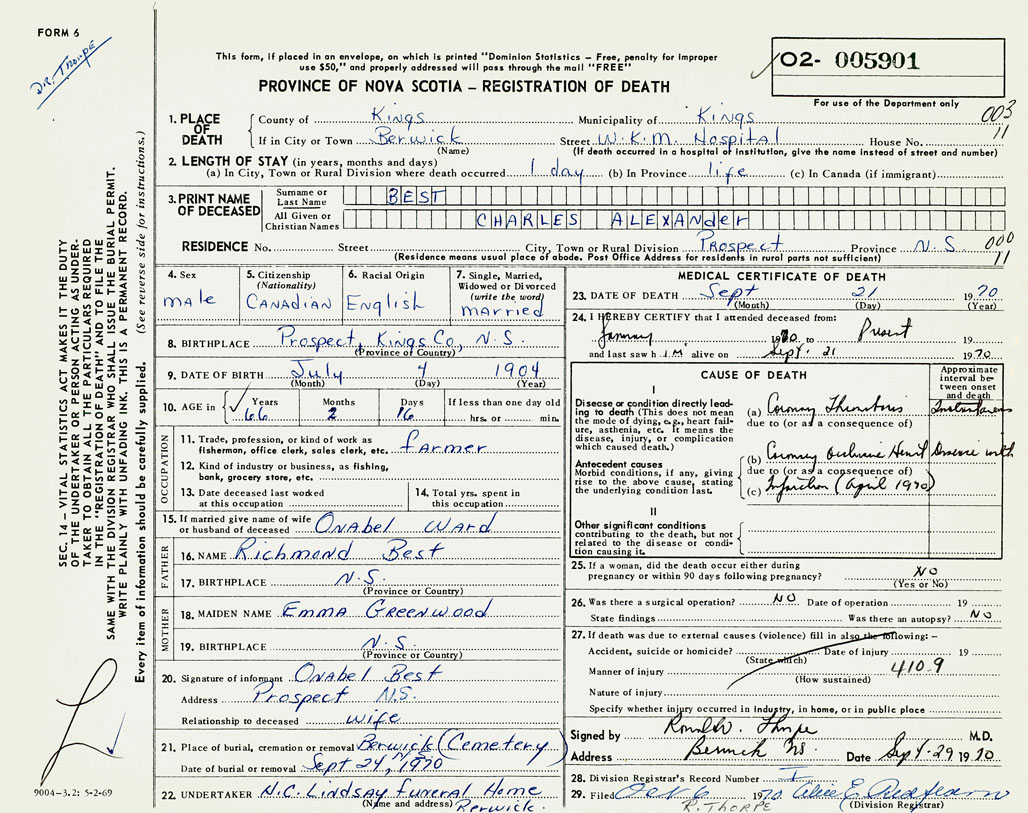 FORM 6
DR. THORPE
This form, if placed in an envelope, on which is printed "Dominion Statistics – Free, penalty for improper
use $50," and properly addressed will pass through the mail "FREE"
PROVINCE OF NOVA SCOTIA – REGISTRATION OF DEATH
02- 005901
For use of the Department only
003
11
1. PLACE OF DEATH
County of Kings Municipality of Kings
If in City or Town Berwick Street W.K.M. Hospital House No.
(Name) (If death occurred in a hospital of institution, give the name instead of street and number)
2. LENGTH OF STAY (in years, months and days)
(a) In City, Town or Rural Division where death occurred 1 day (b) In Province life (c) In Canada (if immigrant)
3. PRINT NAME OF DECEASED
Surname or Last Name BEST
All Given or Christian Names CHARLES ALEXANder
RESIDENCE No. Street City, Town or Rural Division Prospect Province N.S. 000
(Residence means usual place of abode. Post Office Address for residents in rural parts not sufficient) 11
4. Sex male
5. Citizenship (Nationality) CANADIAN
6. Racial Origin English
7. Single, Married, Widowed or Divorced (write the word) married
8. BIRTHPLACE Prospect, Kings Co, N.S.
(Province of Country)
9. DATE OF BIRTH July 4 1904
(Month) (Day) (Year)
10. AGE in Years 66 Months 2 Days 16 If less than one day old hrs. or min.
OCCUPATION
11. Trade, profession, or kind of work as fisherman, office clerk, sales clerk, etc. farmer
12. Kind of industry or business, as fishing, bank, grocery store, etc.
13. Date deceased last worked at this occupation
14. Total yrs. spent in this occupation
15. If married give name of wife or husband of deceased Onabel Ward
FATHER
16. NAME Richmond Best
17. BIRTHPLACE N.S.
(Province or Country)
MOTHER
18. MAIDEN NAME Emma Greenwood
19. BIRTHPLACE N.S.
(Province or Country)
20. Signature of informant Onabel Best
Address Prospect N.S.
Relationship to deceased wife
21. Place of burial, cremation or removal Berwick (Cemetery)
Date of burial or removal Sept 24, 1970
22. UNDERTAKER H.C. Lindsay Funeral Home
(Name and address) Berwick.
MEDICAL CERTIFICATE OF DEATH
23. DATE OF DEATH Sept 21 1970
(Month) (Day) (Year)
24. I HEREBY CERTIFY that I attended deceased from:
January 1970 to Present 19
and last saw h I.M. alive on Sept. 21 1970
CAUSE OF DEATH
Approximate interval between onset and death
I
Disease or condition directly leading to death (This does not mean the mode of dying, e.g., heart failure, asthenia, etc. It means the disease, injury, or complication which caused death.)
(a) Coronary Thrombosis
due to (or as a consequence of)
Antecedent causes
Morbid conditions, if any, giving rise to the above cause, stating the underlying condition last.
(b) Coronary Occlusive Heart Disease with
due to (or as a consequence of)
(c) Infarction (April 1970)
II
Other significant conditions
contributing to the death, but not related to the disease or condition causing it.
25. If a woman, did the death occur either during pregnancy or within 90 days following pregnancy? NO
(Yes or No)
26. Was there a surgical operation? NO Date of operation 19
State findings Was there an autopsy? NO
27. If death was due to external causes (violence) fill in also the following: –
Accident, suicide or homicide? Date of injury 19
(State which)
Manner of injury 410.9
(How sustained)
Nature of injury
Specify whether injury occurred in industry, in home, or in public place
Signed by Ronald W. Thorpe M.D.
Address Berwick NS. Date Sept. 29 1970
28. Division Registrar's Record Number
29. Filed Oct 6 1970 Alice E. Redfearn
R. THORPE (Division Registrar)
SEC. 14 – VITAL STATISTICS ACT MAKES IT THE DUTY
OF THE UNDERTAKER OR PERSON ACTING AS UNDER-
TAKER TO OBTAIN ALL THE PARTICULARS REQUIRED
IN THE "REGISTRATION OF DEATH" AND TO FILE THE
SAME WITH THE DIVISION REGISTRAR WHO SHALL ISSUE THE BURIAL PERMIT.
WRITE PLAINLY WITH UNFADING INK. THIS IS A PERMANENT RECORD.
Every item of information should be carefully supplied. (See reverse side for instructions.)
9004-3.2: 5-2-69